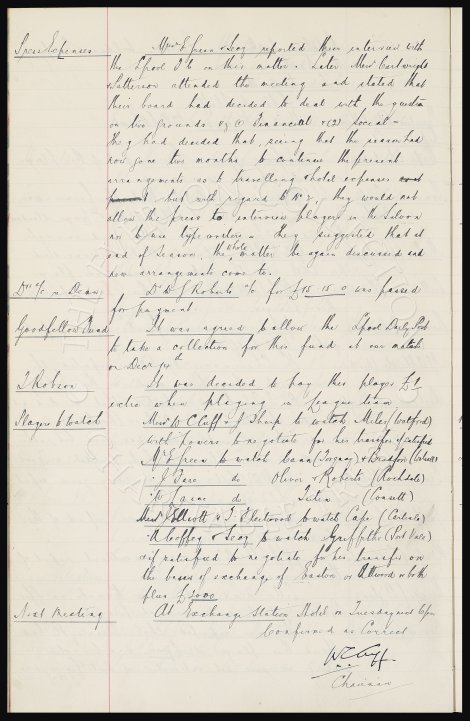 Press Expenses
Messrs E Green & Secy reported their interview with
the L'pool F.C. on this matter. Later Messrs Cartwright
& Patterson attended the meeting and stated that
their board had decided to deal with the question
on two grounds viz (1) Financial & (2) Social -
They had decided that, seeing that the season had
now gone two months to continue the present
arrangements as to travelling & hotel expenses
but with regard to No 2, they would not
allow the press to interview players in the Saloon
nor to use typewriters. They suggested that at
end of season, the whole matter be again discussed and
new arrangements come to.
Dr's a/c re Dean
Dr W J Roberts a/c for £15.15.0 was passed
for payment.
Goodfellow Fund
It was agreed to allow the L'pool Daily Post
to take a collection for this fund at our match
on Decr
T Robson
It was decided to pay this player £1
extra when playing in League team
Players to Watch
Messrs W C Cuff & J Sharp to watch Miles (Watford)
with powers to negotiate for his transfer if satisfied
Mr E Green to watch Cann (Torquay) & Bradford (Walsall)
" J do Oliver & Roberts (Rochdale)
" W do (Consett)
Messrs J Elliott & T Fleetwood to watch Cape (Carlisle)
A Coffey & Secy to watch Griffiths (Port Vale)
& if satisfied to negotiate for his transfer on
the basis of exchange of Easton or Attwood or both
plus £2000
Next Meeting
At Exchange Station Hotel on Tuesday next 6pm
Confirmed as Correct
W C Cuff.
Chairman